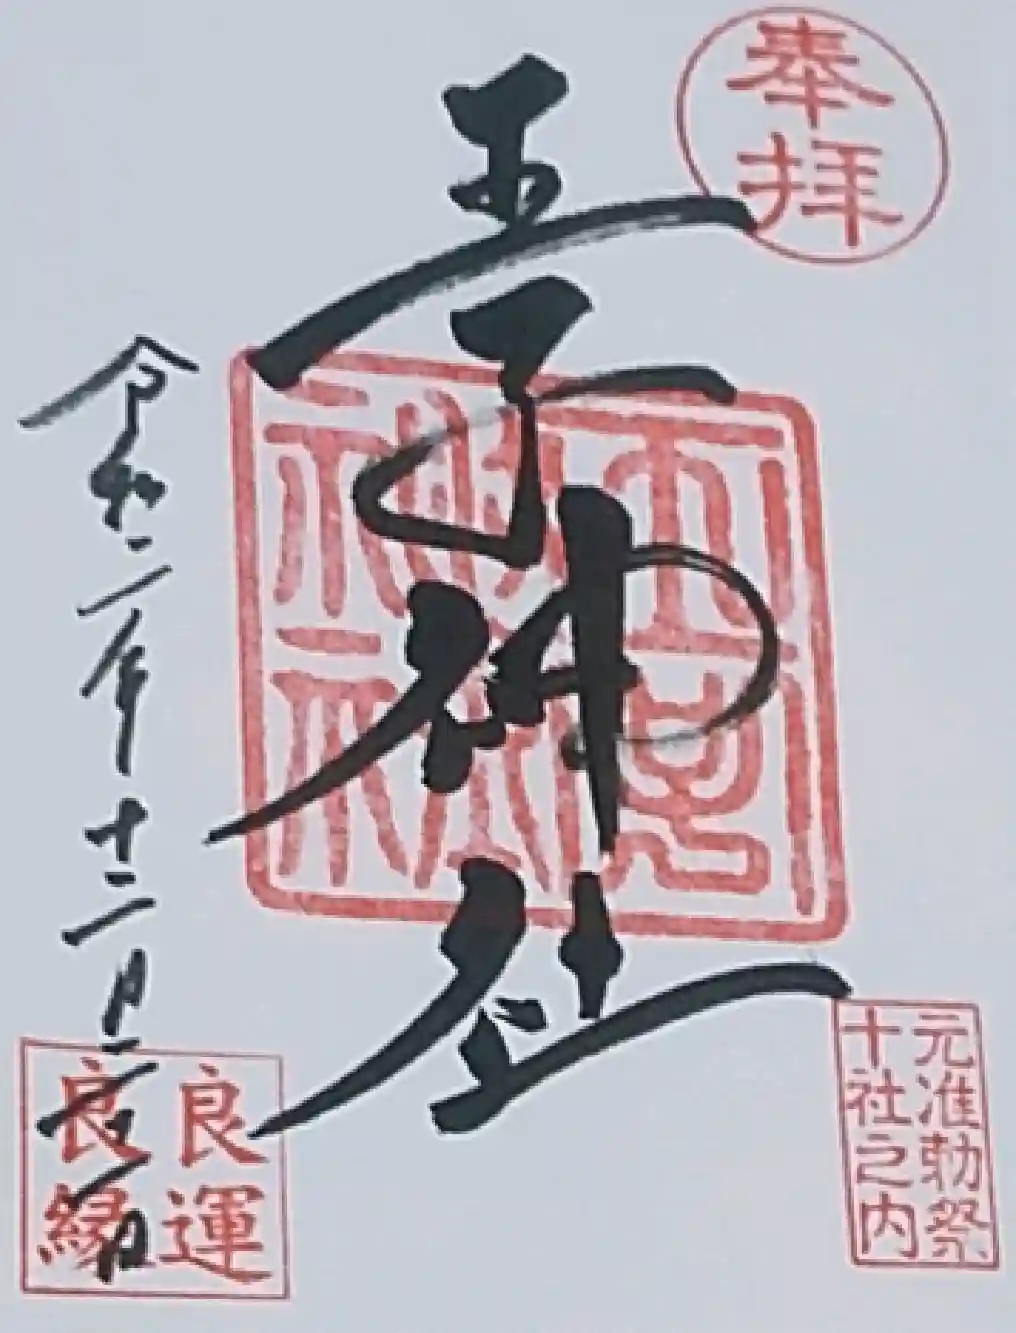 奉拝
元准勅祭
十社之内
王子神社
令和二年十二月
良運
良縁